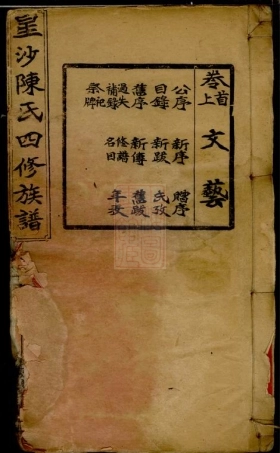 星沙陳氏四修族譜
卷首上
文藝
公序 新序 贈序
目錄 新跋 氏攷
舊序 新傳 舊跋
過失 修譜 年表
補錄 名目
祭祀
牌